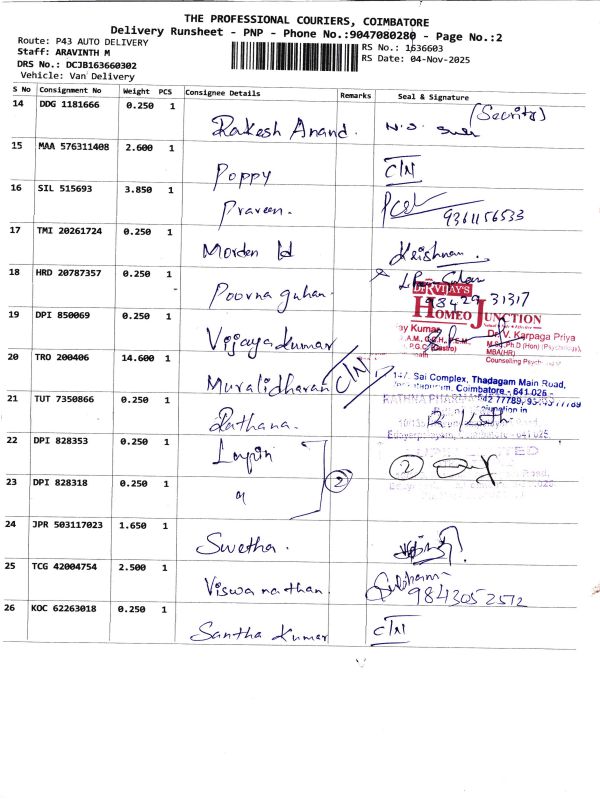 THE PROFESSIONAL COURIERS, COIMBATORE
Delivery Runsheet - PNP - Phone No.:9047080280 - Page No.:2
Route: P43 AUTO DELIVERY
Staff: ARAVINTH M
DRS No.: DCJB163660302
Vehicle: Van Delivery
RS No.: 1636603
RS Date: 04-Nov-2025
S No Consignment No Weight PCS Consignee Details Remarks Seal & Signature
14 DDG 1181666 0.250 1 Rakesh Anand. (Secrity)
15 MAA 576311408 2.600 1 Poppy C/N
16 SIL 515693 3.850 1 Praveen. 9361156533
17 TMI 20261724 0.250 1 Morden Id Krishnan.
18 HRD 20787357 0.250 1 Poorna guhan. 98429 31317
Dr. VIJAY'S
HOMEO JUNCTION
19 DPI 850069 0.250 1 Vijayakumar
Dr. V. Karpaga Priya
MBA(HR)
Counselling
20 TRO 200406 14.600 1 Muralidharan C/N
Sai Complex, Thadagam Main Road,
Coimbatore - 641 025
21 TUT 7350866 0.250 1 Rathana.
RATHNA PHARMA
22 DPI 828353 0.250 1 (2) (2)
23 DPI 828318 0.250 1
24 JPR 503117023 1.650 1 Swetha.
25 TCG 42004754 2.500 1 Viswanathan. 9843052512
26 KOC 62263018 0.250 1 Santha Kumar C/N